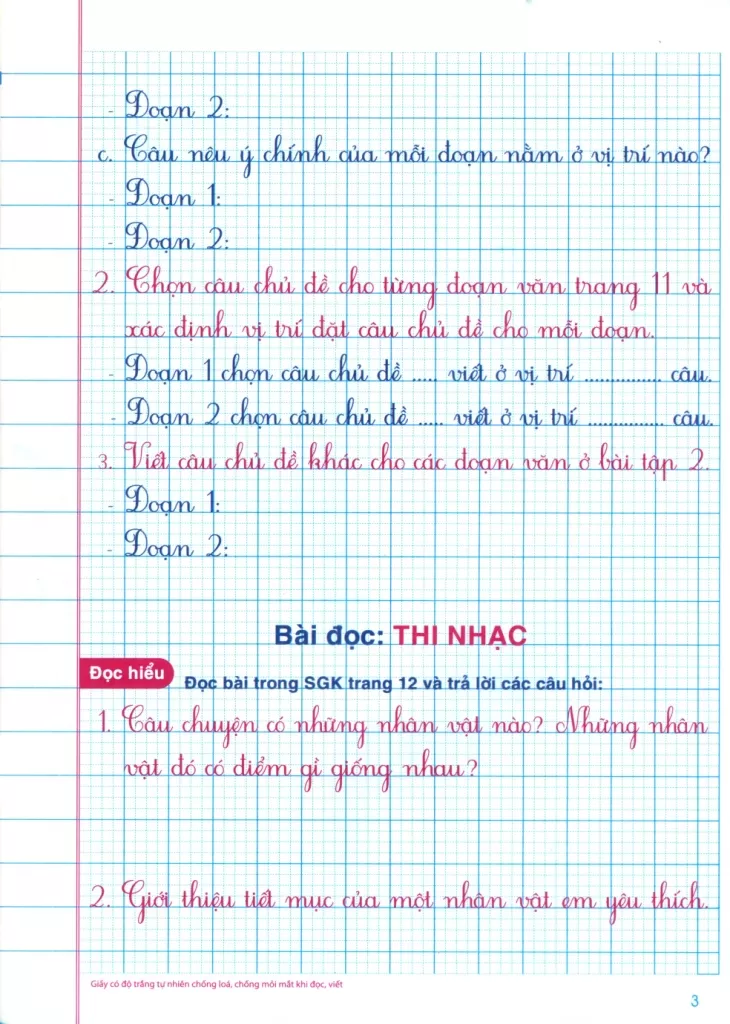 - Đoạn 2:
c. Câu nêu ý chính của mỗi đoạn nằm ở vị trí nào?
- Đoạn 1:
- Đoạn 2:
2. Chọn câu chủ đề cho từng đoạn văn trang 11 và
xác định vị trí đặt câu chủ đề cho mỗi đoạn.
- Đoạn 1 chọn câu chủ đề ..... viết ở vị trí ............... câu.
- Đoạn 2 chọn câu chủ đề ..... viết ở vị trí ............... câu.
3. Viết câu chủ đề khác cho các đoạn văn ở bài tập 2.
- Đoạn 1:
- Đoạn 2:
Bài đọc: THI NHẠC
Đọc hiểu
Đọc bài trong SGK trang 12 và trả lời các câu hỏi:
1. Câu chuyện có những nhân vật nào? Những nhân
vật đó có điểm gì giống nhau?
2. Giới thiệu tiết mục của một nhân vật em yêu thích.
Giấy có độ trắng tự nhiên chống loá, chống mỏi mắt khi đọc, viết
3